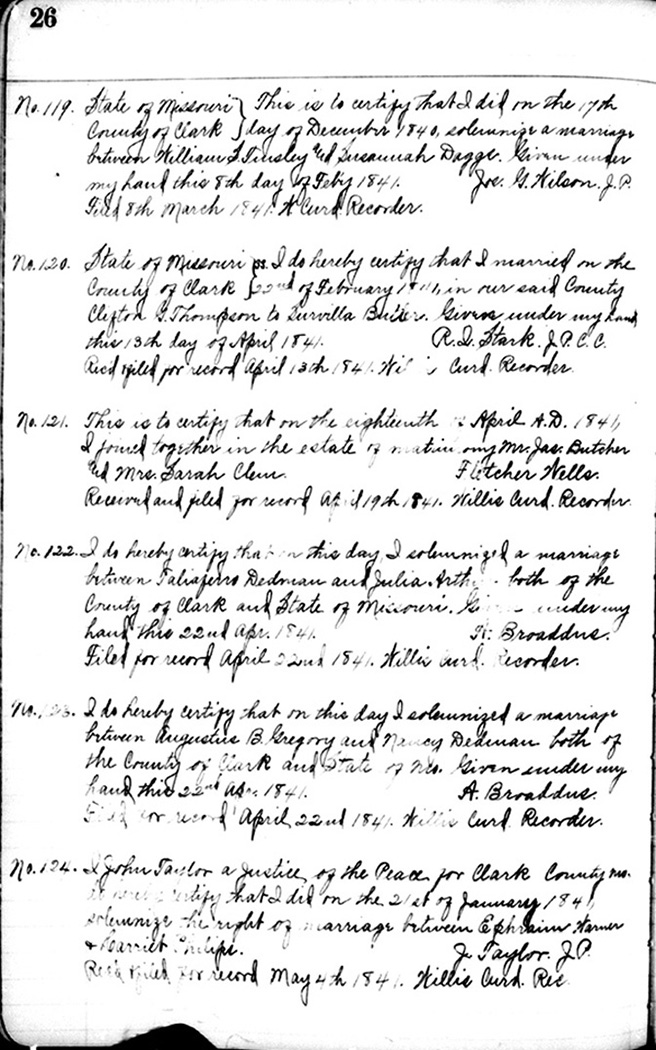 26
No. 119. State of Missouri } This is to certify that I did on the 17th
County of Clark } day of December 1840, solemnize a marriage
between William T. Tinsley and Susannah Dagge. Given under
my hand this 8th day of Feby 1841. Jos. G. Wilson. J.P.
Filed 8th March 1841. W Curd Recorder.
No. 120. State of Missouri ss. I do hereby certify that I married on the
County of Clark } 22nd of February 1841, in our said County
Clifton G. Thompson to Durvilla Butler. Given under my hand
this 13th day of April 1841. R. D. Stark. J.P.C.C.
Rec'd & filed for record April 13th 1841. Curd. Recorder.
No. 121. This is to certify that on the eighteenth of April A.D. 1841,
I joined together in the estate of matrimony Mr. Jas. Butcher
and Mrs. Sarah Clem. Fletcher Wells.
Received and filed for record April 19th 1841. Willis Curd. Recorder.
No. 122. I do hereby certify that on this day, I solemnized a marriage
between Taliaferro Dedman and Julia both of the
County of Clark and State of Missouri. Given under my
hand this 22nd Apr. 1841. A. Broaddus.
Filed for record April 22nd 1841. Willis Curd. Recorder.
No. 123. I do hereby certify that on this day I solemnized a marriage
between Augustus B. Gregory and Nancy Dedman both of
the County of Clark and State of Mo. Given under my
hand this 22nd Apr. 1841. A. Broaddus.
Filed for record April 22nd 1841. Willis Curd. Recorder.
No. 124. I John Taylor a Justice of the Peace for Clark County Mo.
do hereby certify that I did on the 21st of January 1841,
solemnize the right of marriage between Ephraim Warner
& Harriet Philips. J. Taylor. J.P.
Rec'd & filed for record May 4th 1841. Willis Curd. Rec.